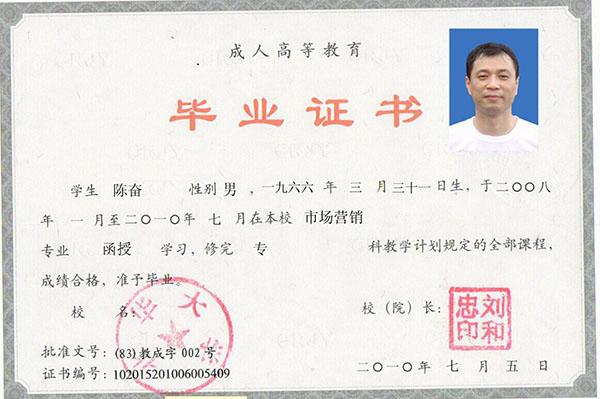 成人高等教育
毕业证书
学生 陈奋 性别 男 ，一九六六年 三 月三十一日生，于二〇〇八
年 一月至二〇一〇年 七 月在本校 市场营销
专业 函授 学习，修完 专 科教学计划规定的全部课程，
成绩合格，准予毕业。
校 名： 校（院）长： 刘和忠印
批准文号：(83)教成字 002 号
证书编号：102015201006005409 二〇一〇年 七 月 五 日